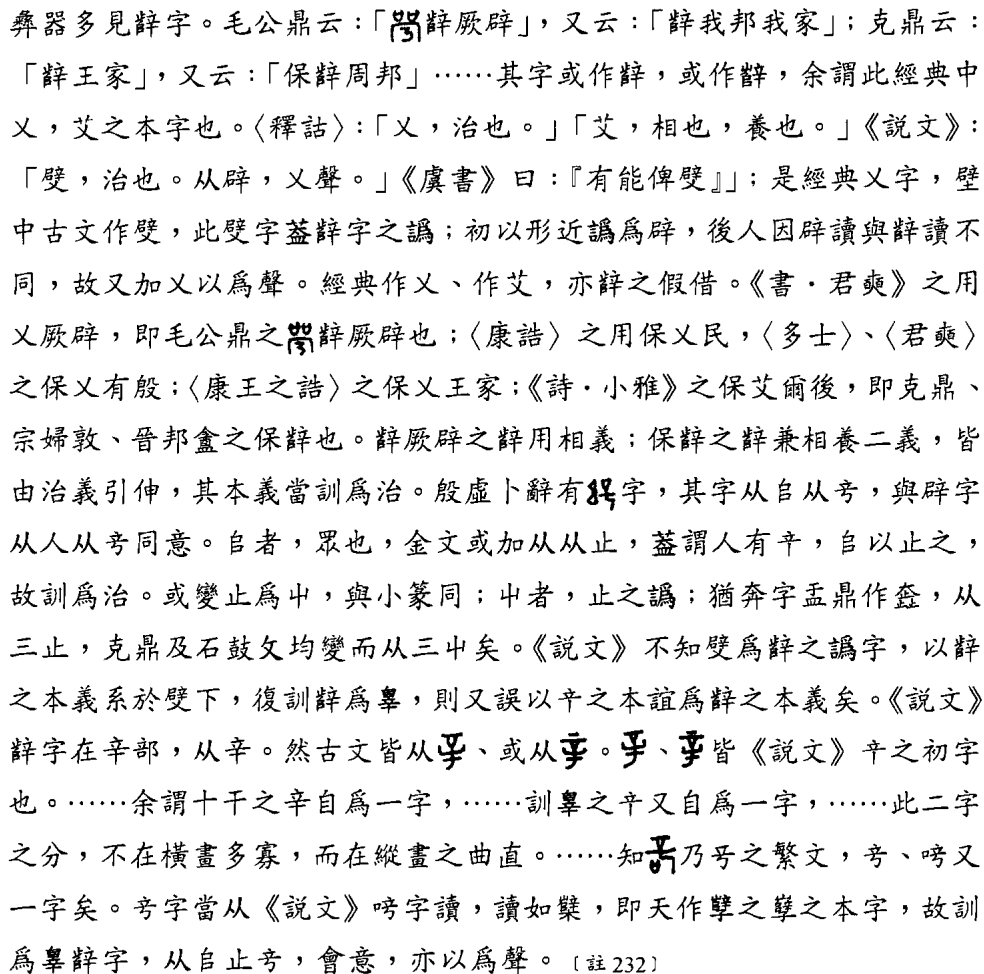 彝器多見辥字。毛公鼎云:「辥厥辟」,又云:「辥我邦我家」;克鼎云:
「辥王家」,又云:「保辥周邦」……其字或作辥,或作,余謂此經典中
乂,艾之本字也。〈釋詁〉:「乂,治也。」「艾,相也,養也。」《說文》:
「嬖,治也。从辟,乂聲。」《虞書》曰:『有能俾嬖』」;是經典乂字,壁
中古文作嬖,此嬖字葢辥字之譌;初以形近譌爲辟,後人因辟讀與辥讀不
同,故又加乂以爲聲。經典作乂、作艾,亦辥之假借。《書.君奭》之用
乂厥辟,即毛公鼎之辥厥辟也;〈康誥〉之用保乂民,〈多士〉、〈君奭〉
之保乂有殷;〈康王之誥〉之保乂王家;《詩.小雅》之保艾爾後,即克鼎、
宗婦敦、晉邦盦之保辥也。辥厥辟之辥用相義;保辥之辥兼相養二義,皆
由治義引伸,其本義當訓爲治。殷虛卜辭有字,其字从𠂤从䇂,與辟字
从人从䇂同意。𠂤者,眾也,金文或加从从止,葢謂人有䇂,𠂤以止之,
故訓爲治。或變止爲屮,與小篆同;屮者,止之譌;猶奔字盂鼎作,从
三止,克鼎及石鼓文均變而从三屮矣。《說文》不知嬖爲辥之譌字,以辥
之本義系於嬖下,復訓辥爲辠,則又誤以䇂之本誼爲辥之本義矣。《說文》
辥字在辛部,从辛。然古文皆从、或从。、皆《說文》䇂之初字
也。……余謂十干之辛自爲一字,……訓辠之䇂又自爲一字,……此二字
之分,不在橫畫多寡,而在縱畫之曲直。……知乃之繁文,、又
一字矣。字當从《說文》字讀,讀如櫱,即天作孽之孽之本字,故訓
爲辠辥字,从𠂤止,會意,亦以爲聲。〔註232〕